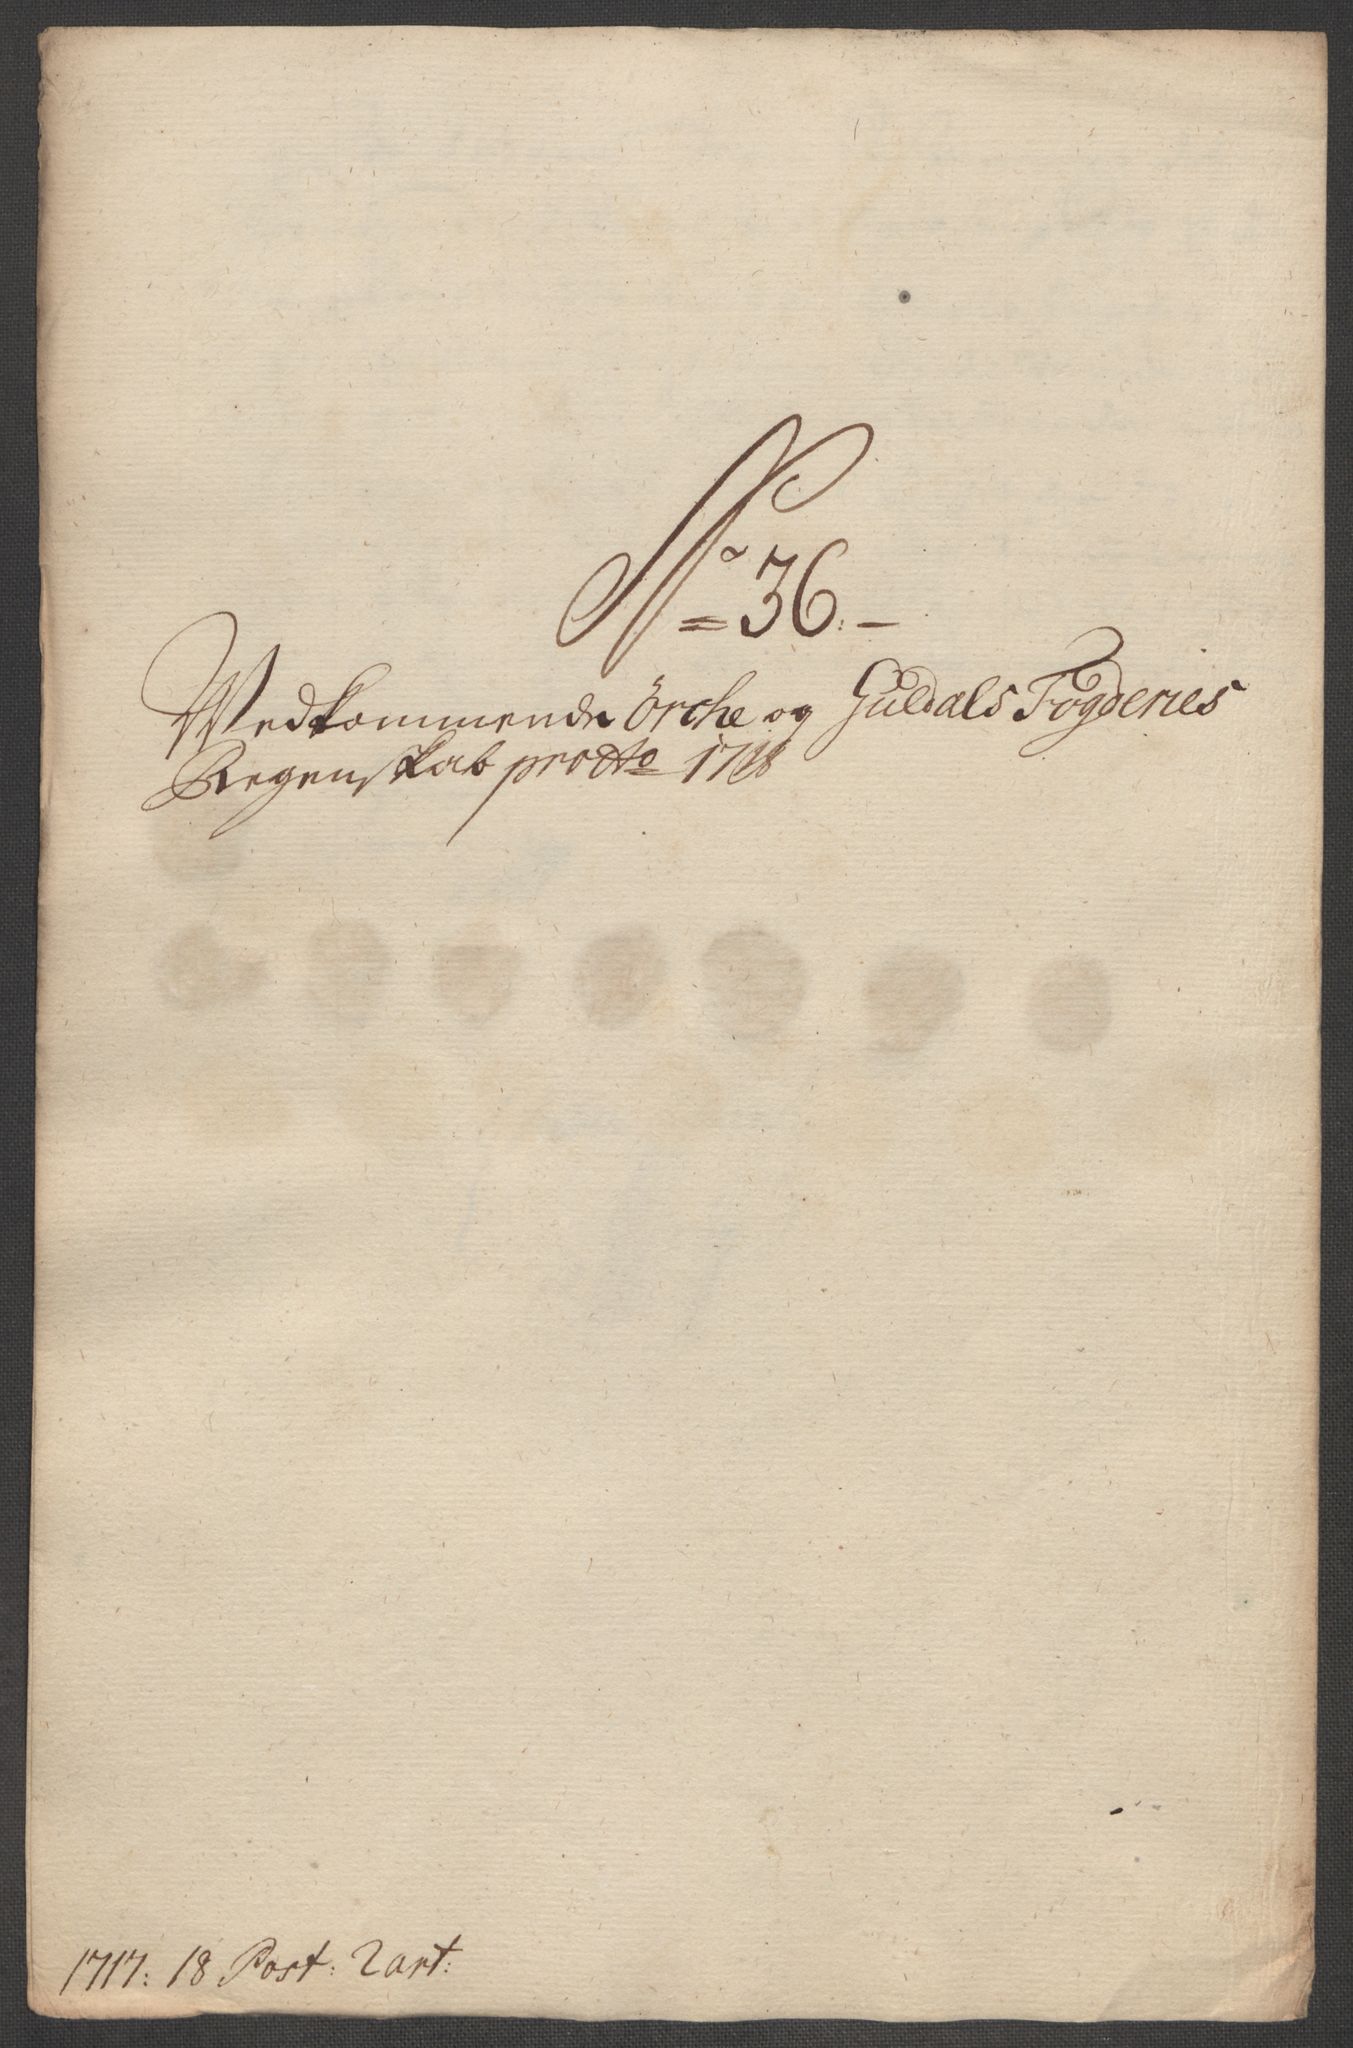 No 36.
Vedkommende Örche og Guldals Fogderies
Regenskab pro Ao 1718
1717: 18 Post: 2 art: